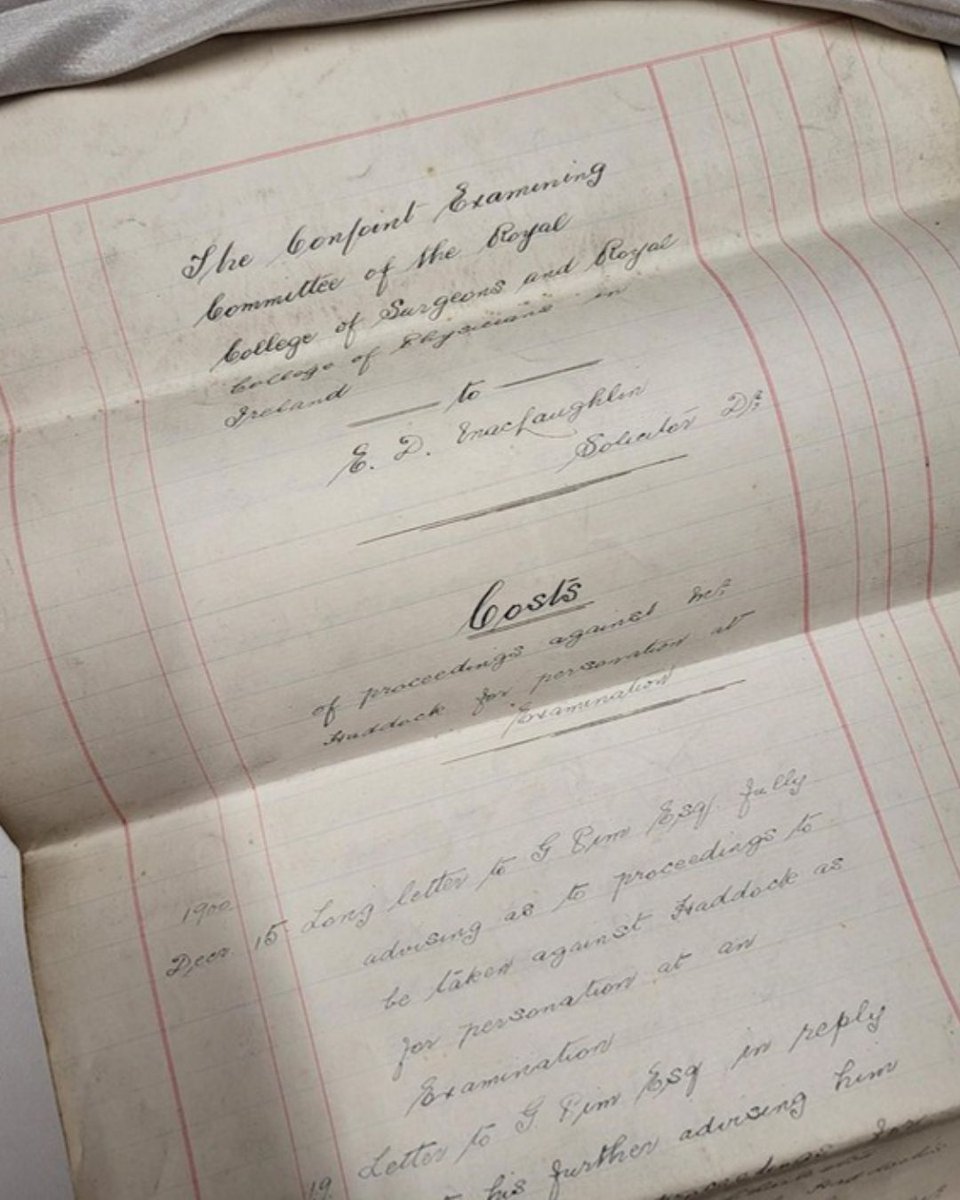 The Conjoint Examining
Committee of the Royal
College of Surgeons and Royal
College of Physicians in
Ireland
to
E. D. MacLaughlin
Solicitor Dr.
Costs
of proceedings against Mr.
Haddock for personation at
Examination
1900
Decr 15 Long letter to G Pim Esq fully
advising as to proceedings to
be taken against Haddock as
for personation at an
Examination
19 Letter to G Pim Esq in reply
to his further advising him
proceedings for